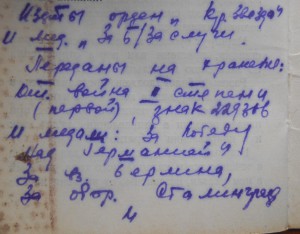 Изъяты орден „Кр. Звезда"
и мед. „За б/заслуги.
Переданы на хранение:
От. война II степени
(первой), знак 229386
и медали: За победу
над Германией и
За вз. Берлина,
За обор. Сталинград